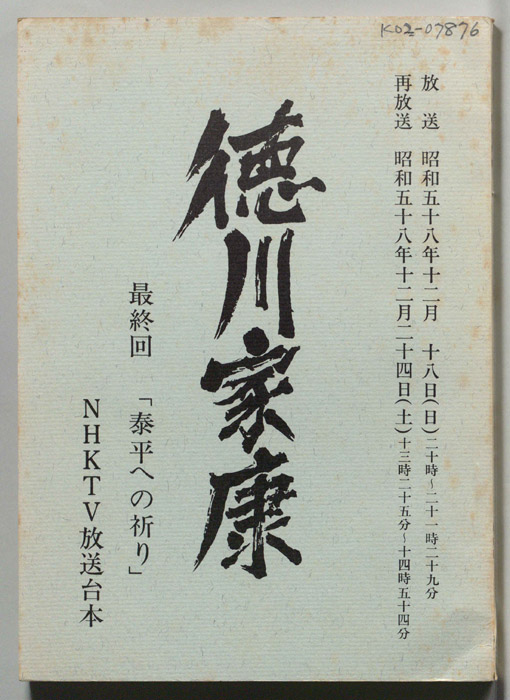 K02-07876
放　送　昭和五十八年十二月　十八日(日)二十時～二十一時二十九分
再放送　昭和五十八年十二月二十四日(土)十三時二十五分～十四時五十四分
徳川家康
最終回　「泰平への祈り」
NHKTV放送台本